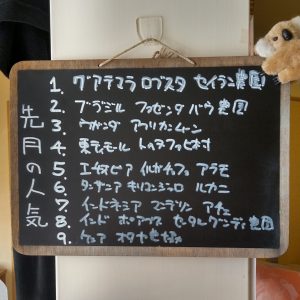 先月の人気
1. グアテマラ ロブスタ セイラン農園
2. ブラジル ファゼンダ バウ農園
3. ウガンダ アフリカンムーン
4. 東ティモール レテフォホ村
5. エチオピア イルガチェフェ アラモ
6. タンザニア キリマンジャロ ルカニ
7. インドネシア マンデリン アチェ
8. インド ポアブス セタルグンディ農園
9. ケニア